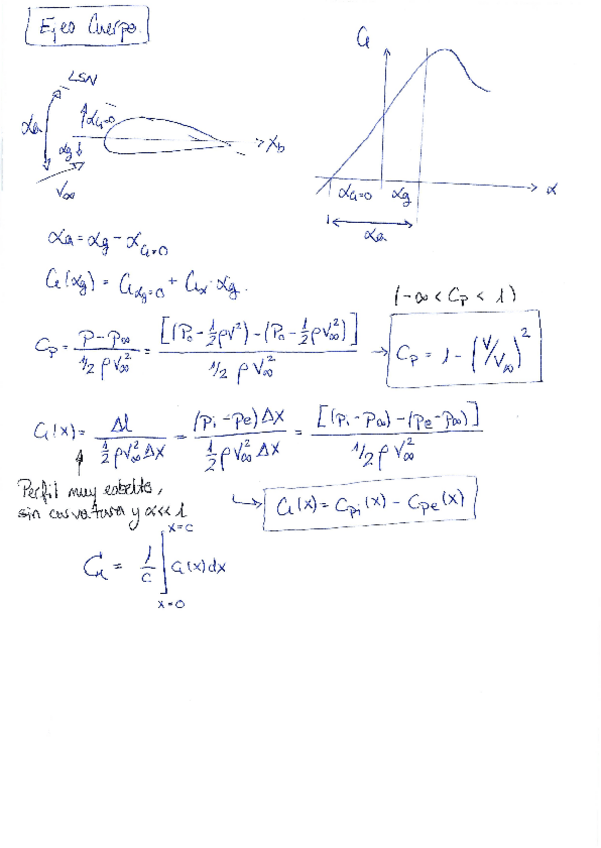 Ejes Cuerpo
LSN
αa
αCl=0
αg
V∞
Xb
Cl
α
αCl=0 αg
αa
αa = αg - αCl=0
Cl(αg) = Clαg=0 + Clα · αg.
(-∞ < Cp < 1)
Cp = (p - p∞) / (1/2 ρ V∞²) = [(P₀ - 1/2 ρV²) - (P₀ - 1/2 ρV∞²)] / (1/2 ρ V∞²) → Cp = 1 - (V/V∞)²
Cl(x) = Δl / (1/2 ρV∞² Δx) = (pi - pe)Δx / (1/2 ρV∞² Δx) = [(pi - p∞) - (pe - p∞)] / (1/2 ρ V∞²)
Perfil muy esbelto,
sin curvatura y α<<1
Cl(x) = Cpi(x) - Cpe(x)
x=c
Cl = 1/c ∫ Cl(x)dx
x=0